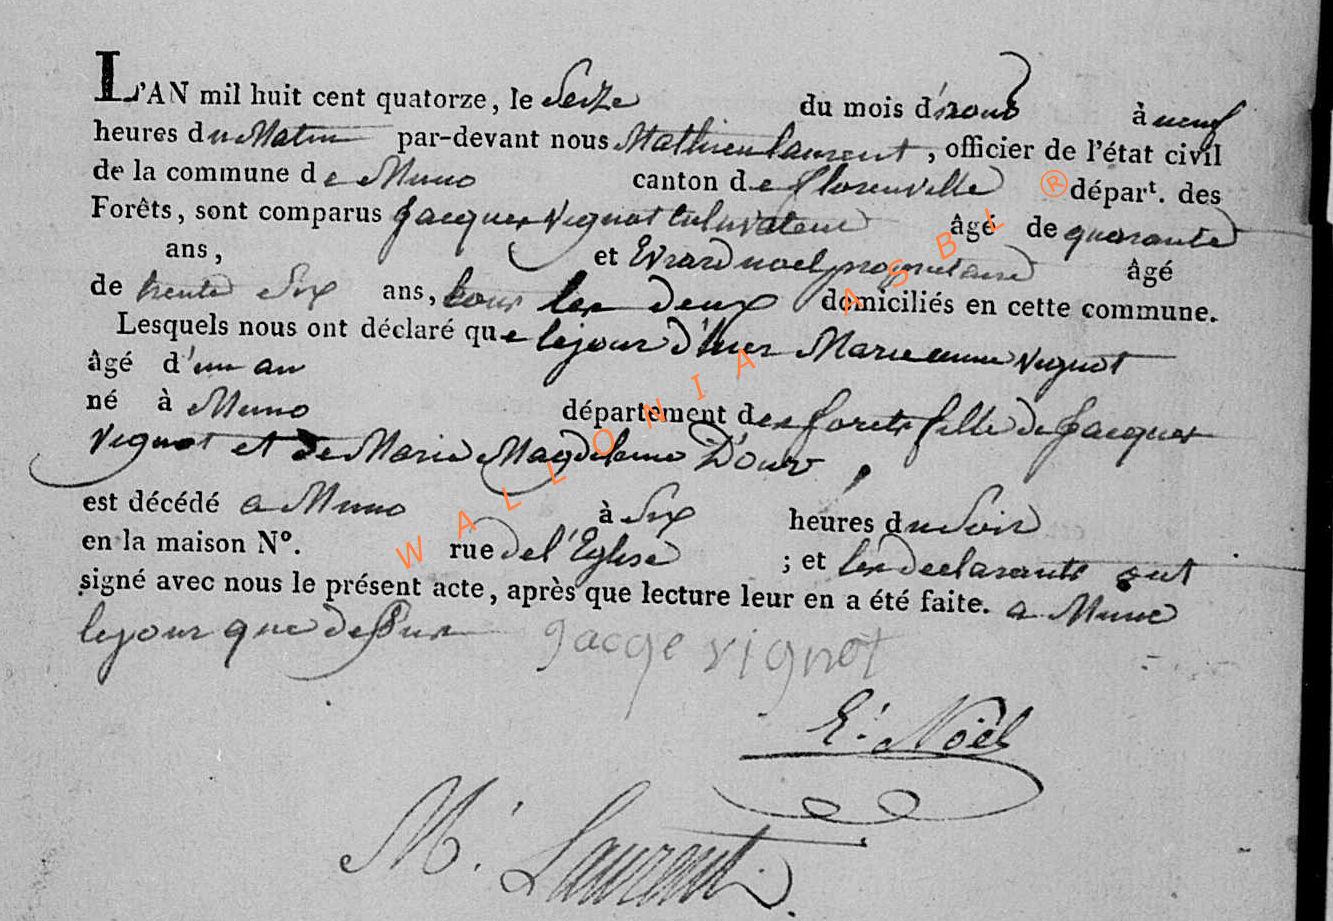 L'AN mil huit cent quatorze, le Seize du mois d'aout à neuf
heures du Matin par-devant nous Mathieu Laurent, officier de l'état civil
de la commune de Muno canton de florenville départ. des
Forêts, sont comparus Jacques Vignot Cultivateur âgé de quarante
ans, et Evrard noel proprietaire âgé
de trente Six ans, tous les deux domiciliés en cette commune.
Lesquels nous ont déclaré que le jour d'hier Marie anne Vignot
âgé d'un an
né à Muno département des forets fille de Jacques
Vignot et de Marie Magdelaine
est décédé a Muno à Six heures du Soir
en la maison N°. rue de l'Eglise ; et les declarants ont
signé avec nous le présent acte, après que lecture leur en a été faite. a Muno
le jour que dessus Jacqe vignot
E. Noël
M. Laurent
WALLONIA ASBL ®